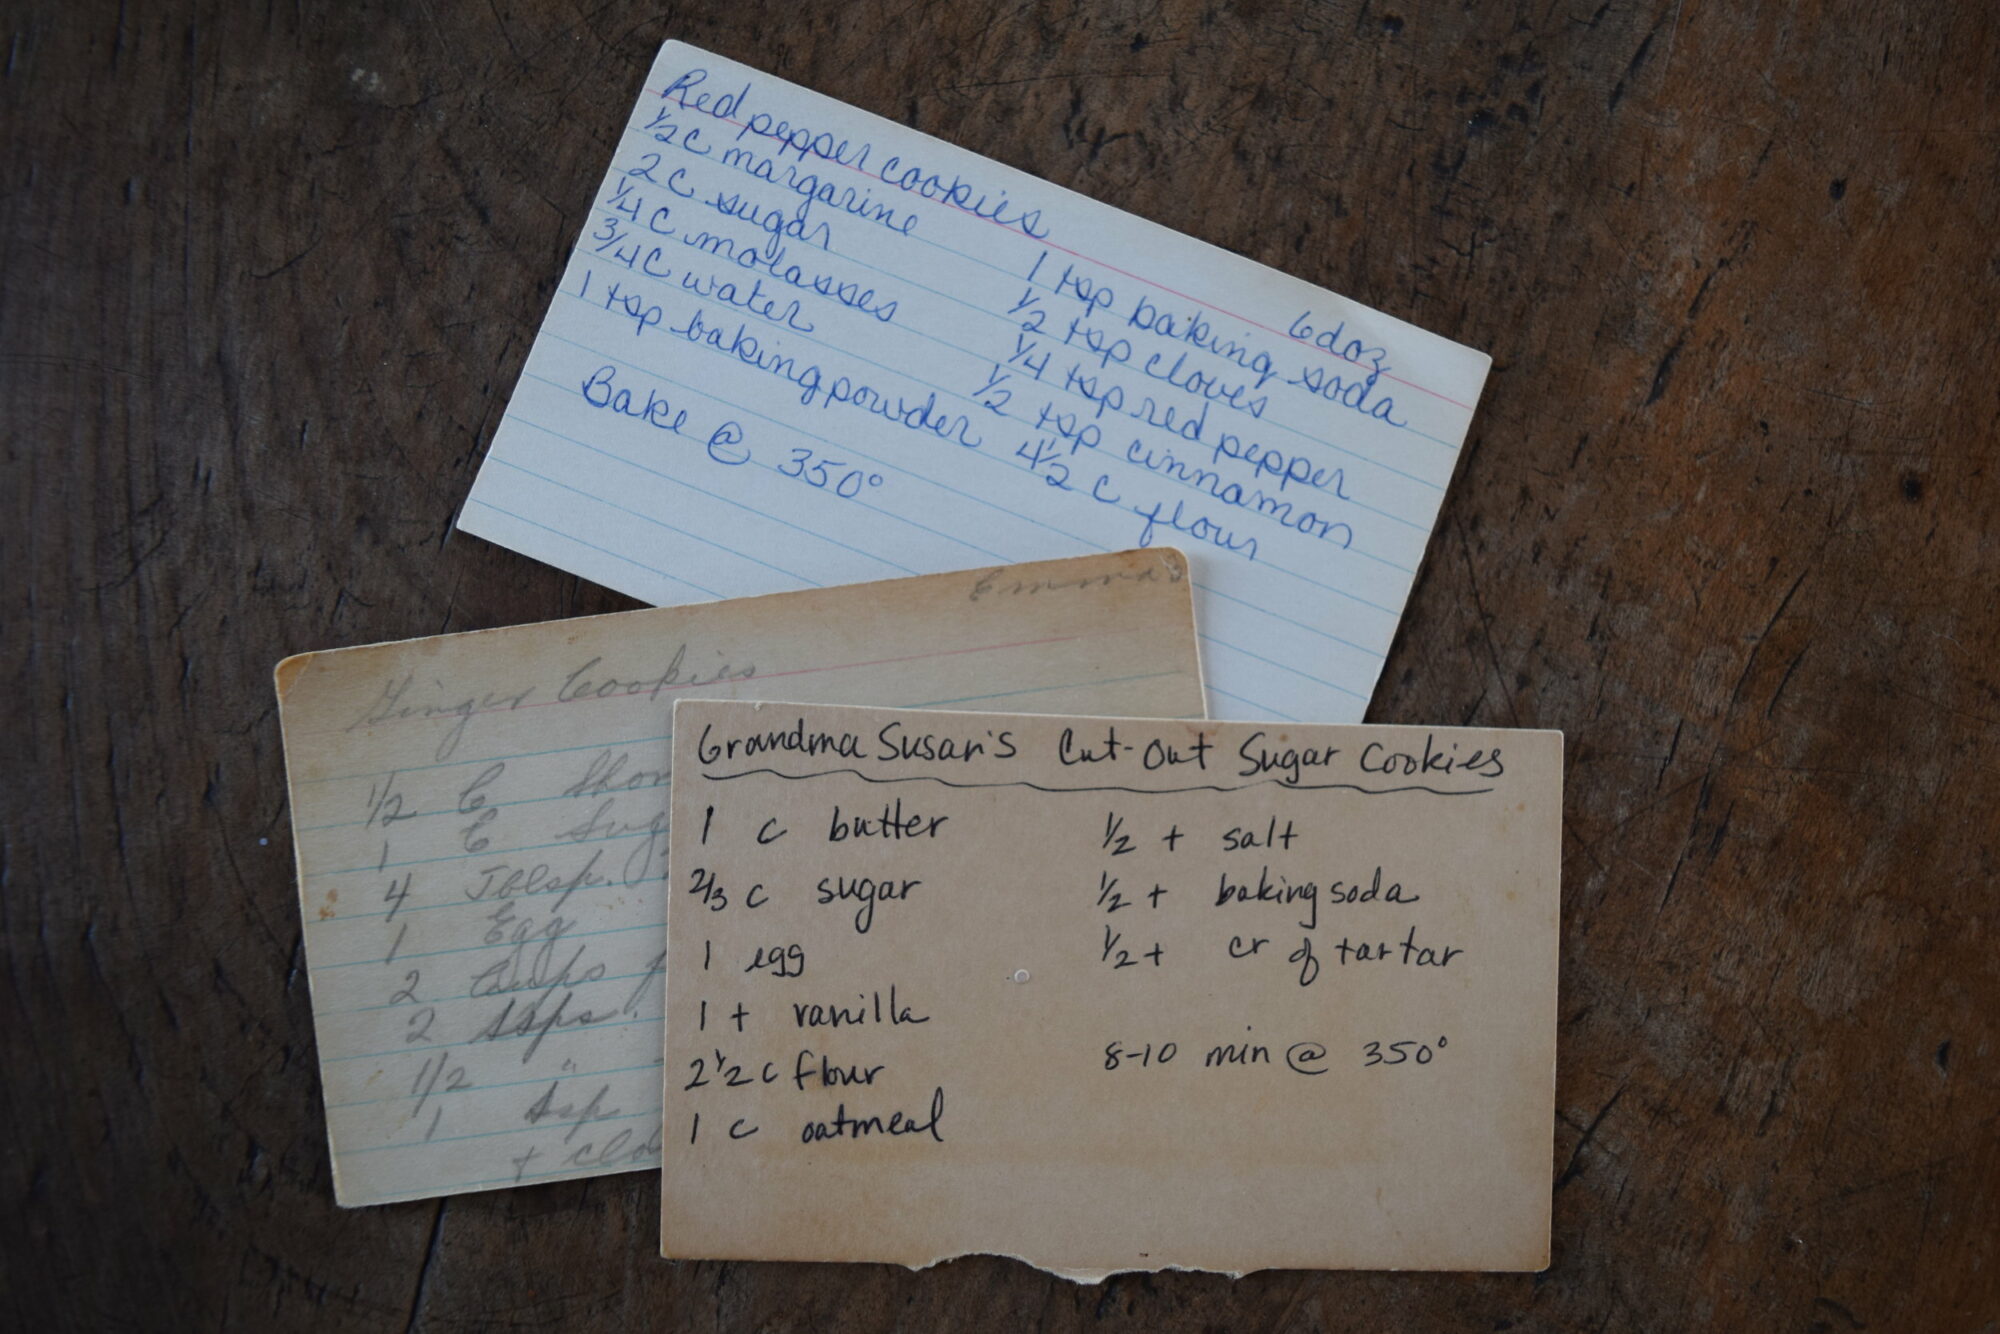 Red pepper cookies
6 doz
1/2 c margarine
2 c sugar
1/4 c molasses
3/4 c water
1 tsp baking powder
1 tsp baking soda
1/2 tsp cloves
1/4 tsp red pepper
1/2 tsp cinnamon
4 1/2 c flour
Bake @ 350°
Emma's
Ginger Cookies
1/2 C
1 C
4 Tblsp.
1 Egg
2 Cups
2 tsps.
1/2 "
1 tsp
+
Grandma Susan's Cut-Out Sugar Cookies
1 c butter
2/3 c sugar
1 egg
1 t vanilla
2 1/2 c flour
1 c oatmeal
1/2 t salt
1/2 t baking soda
1/2 t cr of tartar
8-10 min @ 350°